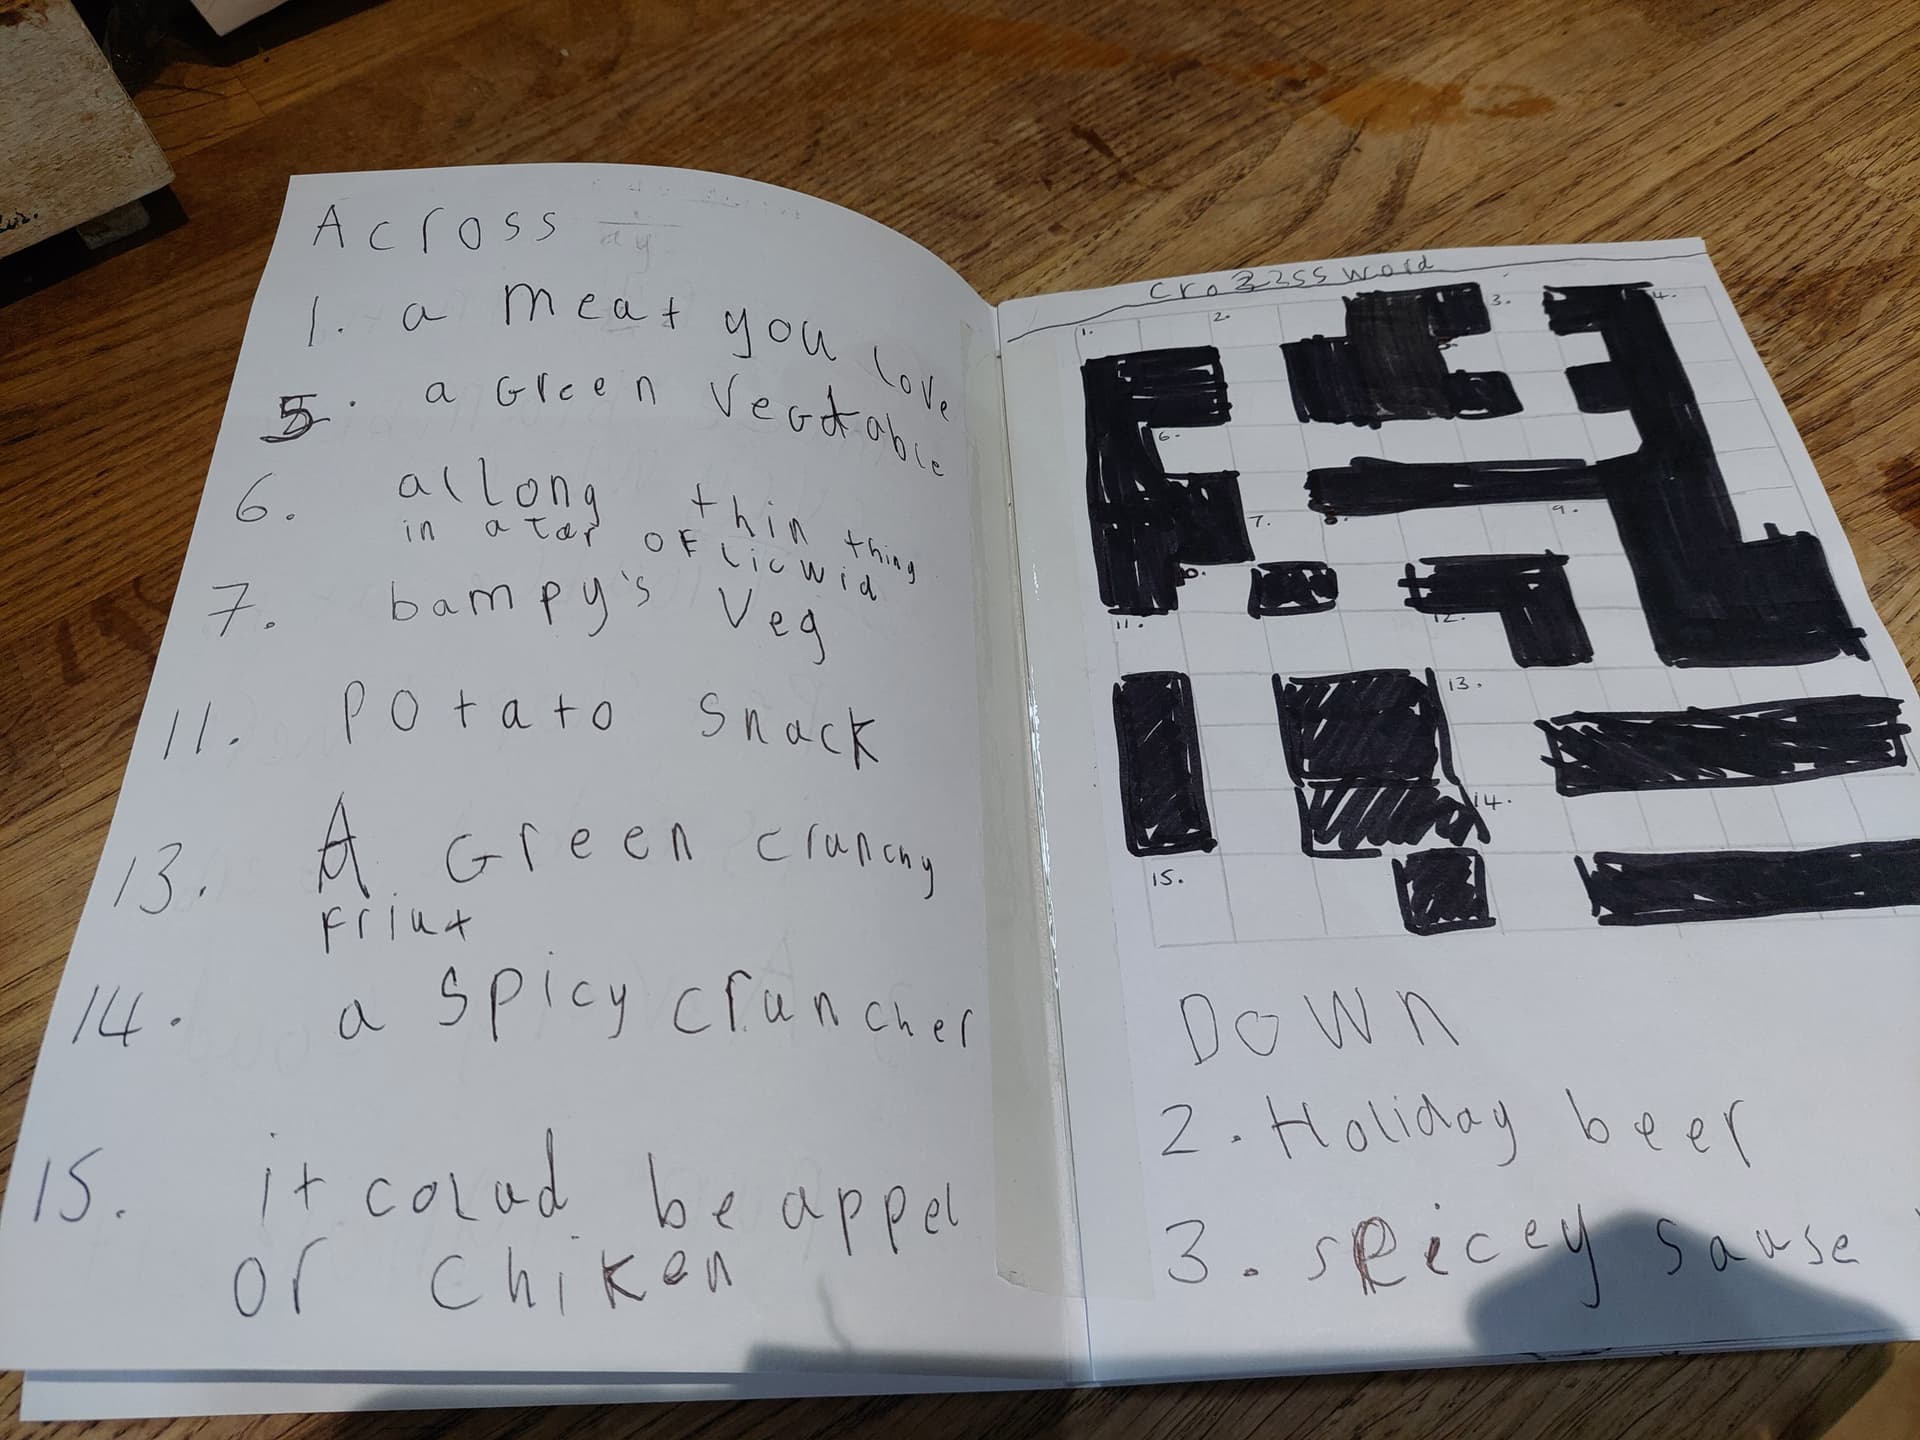 Across
1. a meat you love
5. a Green Vegtable
6. a llong thin thing
in a tar of licwid
7. bampy's Veg
11. Potato snack
13. A Green crunchy
Friut
14. a spicy cruncher
15. it colud be appel
or chiken
cro33ssword
1. 2. 3. 4.
6.
7. 8. 9.
11. 12.
13.
14.
15.
Down
2. Holiday beer
3. spicey sause